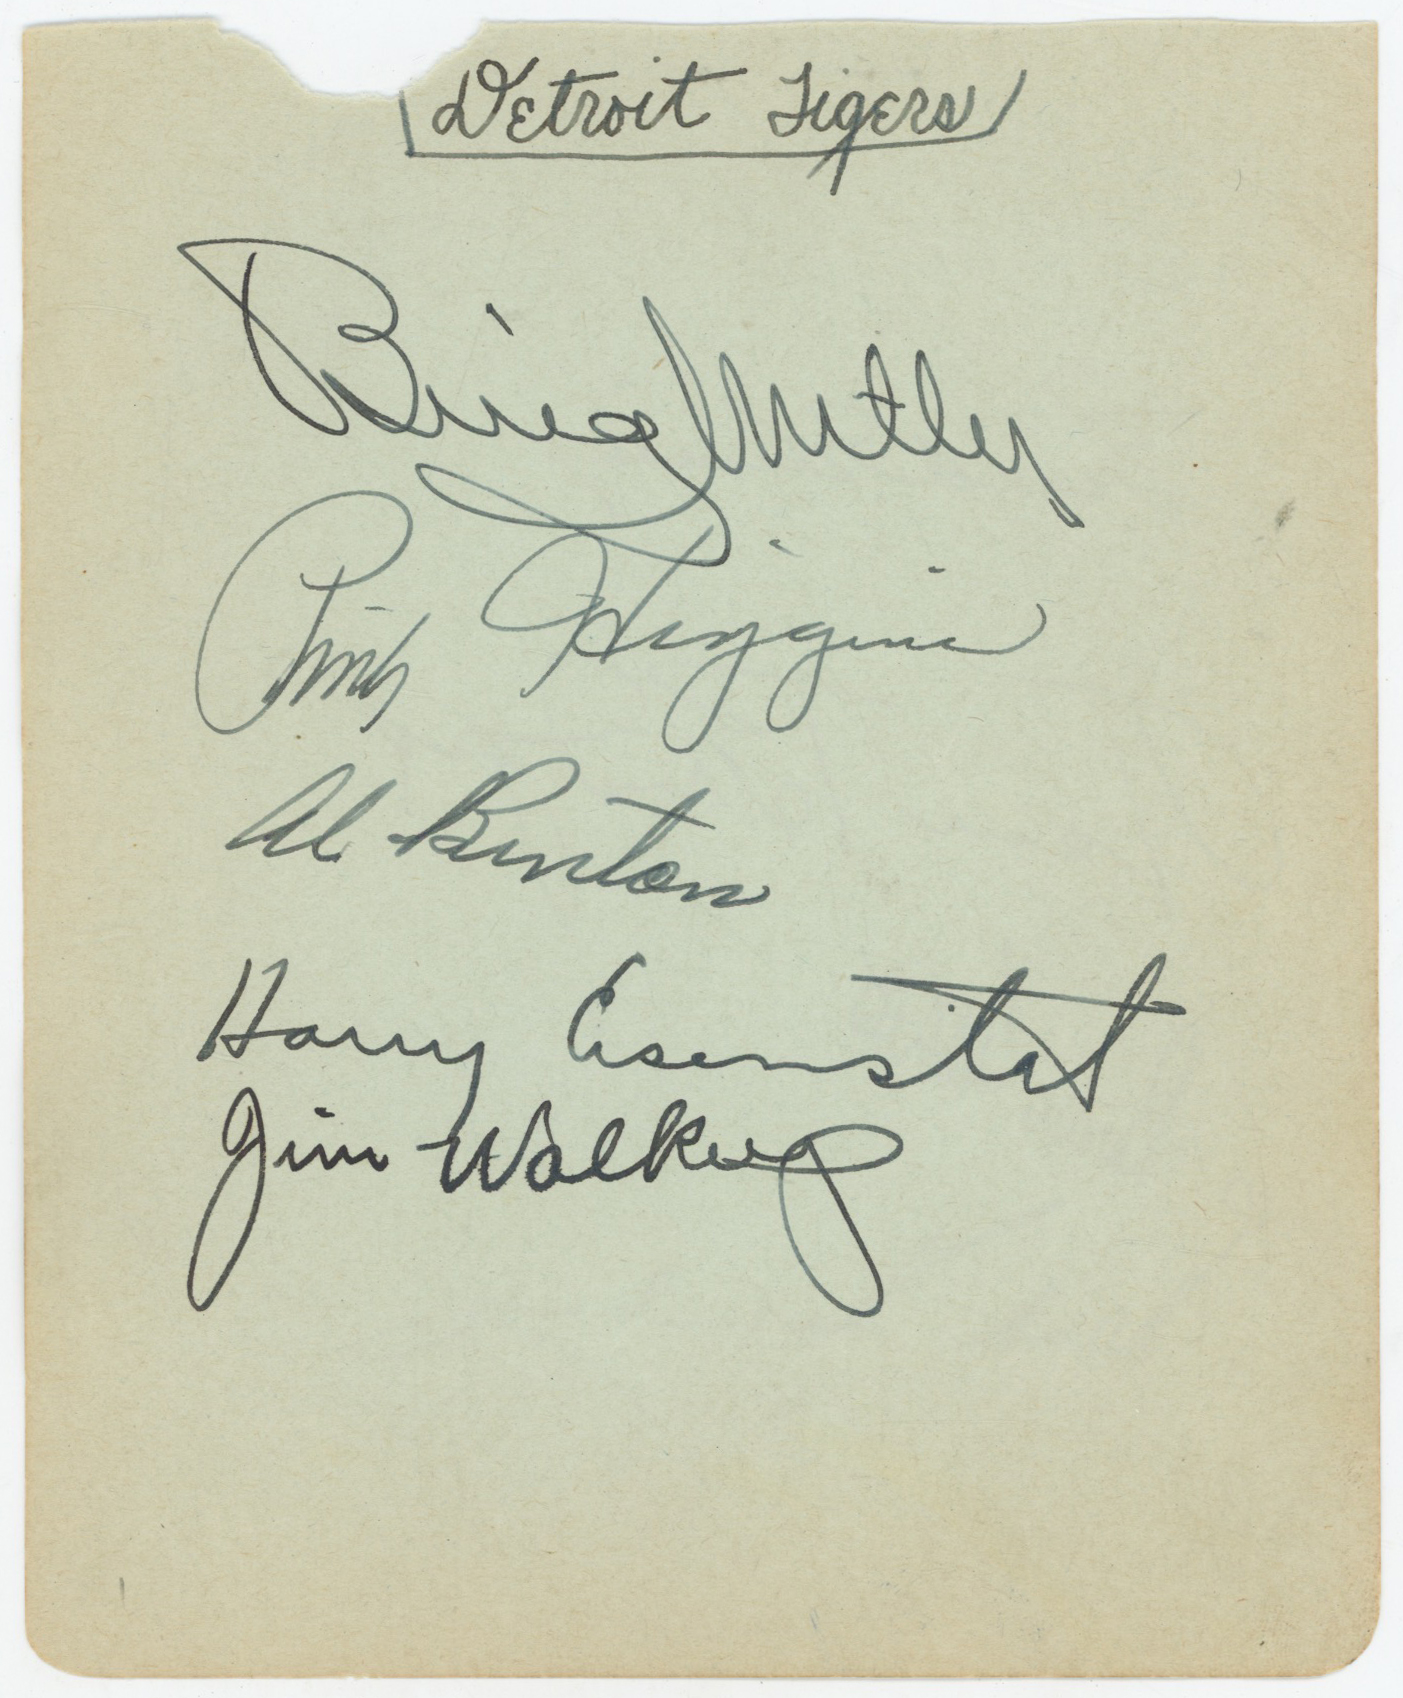 Detroit Tigers
Bing Miller
Pink Higgins
Al Benton
Harry Eisenstat
Jim Walkup